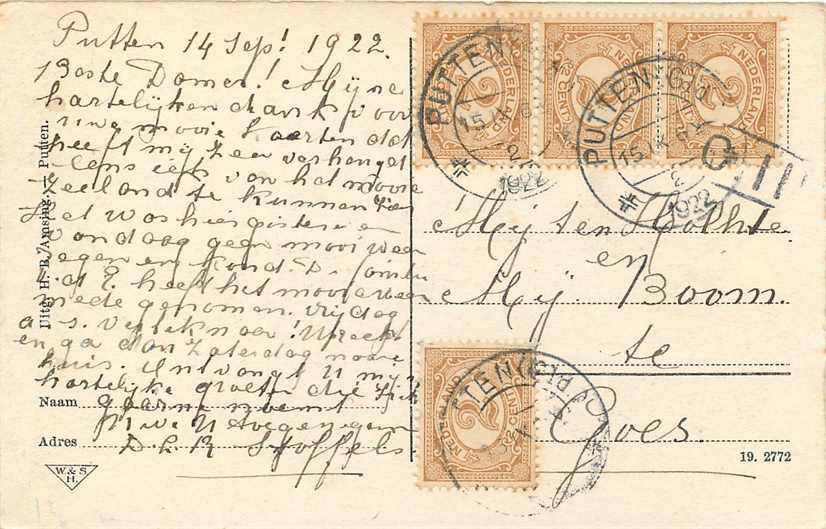 Putten 14 Sep! 1922.
Beste Dames! Mijne
hartelijken dank voor
uwe mooie kaarten dat
heeft mij zeer verlangd
eens iets van het mooie
Zeeland te kunnen zien
Het was hier gisteren en
vandaag geen mooi weer
regen en koud. D
heeft het mooie weer
mede genomen. Vrijdag
a.s. vertrek naar Utrecht
en ga dan Zaterdag naar
huis. Ontvangt U mijn
hartelijke groeten die ik
gaarne
Stoffels.
Naam
Adres
Uitg. H. R. Amsing, — Putten.
W. & S.
H.
NEDERLAND
2½ CENT
NEDERLAND
2½ CENT
NEDERLAND
2½ CENT
PUTTEN (GLD)
15 IX
1922
PUTTEN (GLD)
15 IX
1922
Mej. ten Holthe
en
Mej. Boom.
te
Goes.
NEDERLAND
2½ CENT
19. 2772